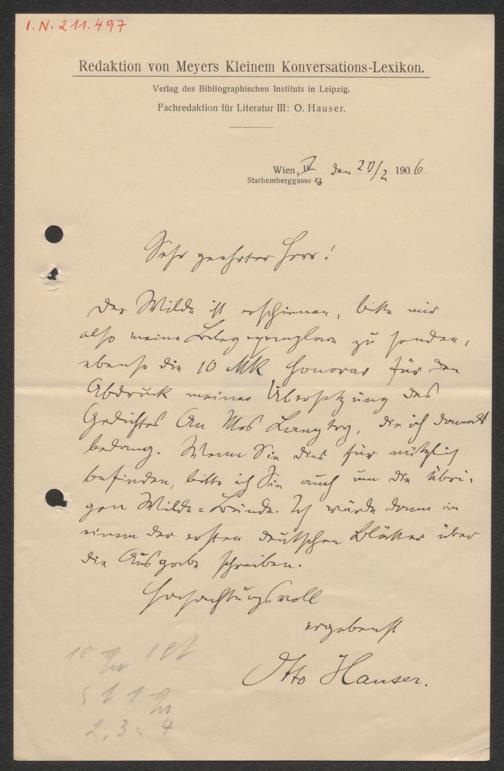 I.N. 211.497
Redaktion von Meyers Kleinem Konversations-Lexikon.
Verlag des Bibliographischen Instituts in Leipzig.
Fachredaktion für Literatur III: O. Hauser.
Wien, den 20/2 1906
Starhemberggasse
Sehr geehrter Herr!
Der Wilde ist erschienen, bitte mir
also meine Belegexemplare zu senden,
ebenso die 10 Mk Honorar für den
Abdruck meiner Übersetzung des
Gedichtes An Mrs Langtry, die ich damals
bedang. Wenn Sie dies für nützlich
befinden, bitte ich Sie auch um die übri-
gen Wilde-Bände. Ich würde dann in
einem der ersten deutschen Blätter über
die Ausgabe schreiben.
Hochachtungsvoll
ergebenst
Otto Hauser.
10
2, 3 4